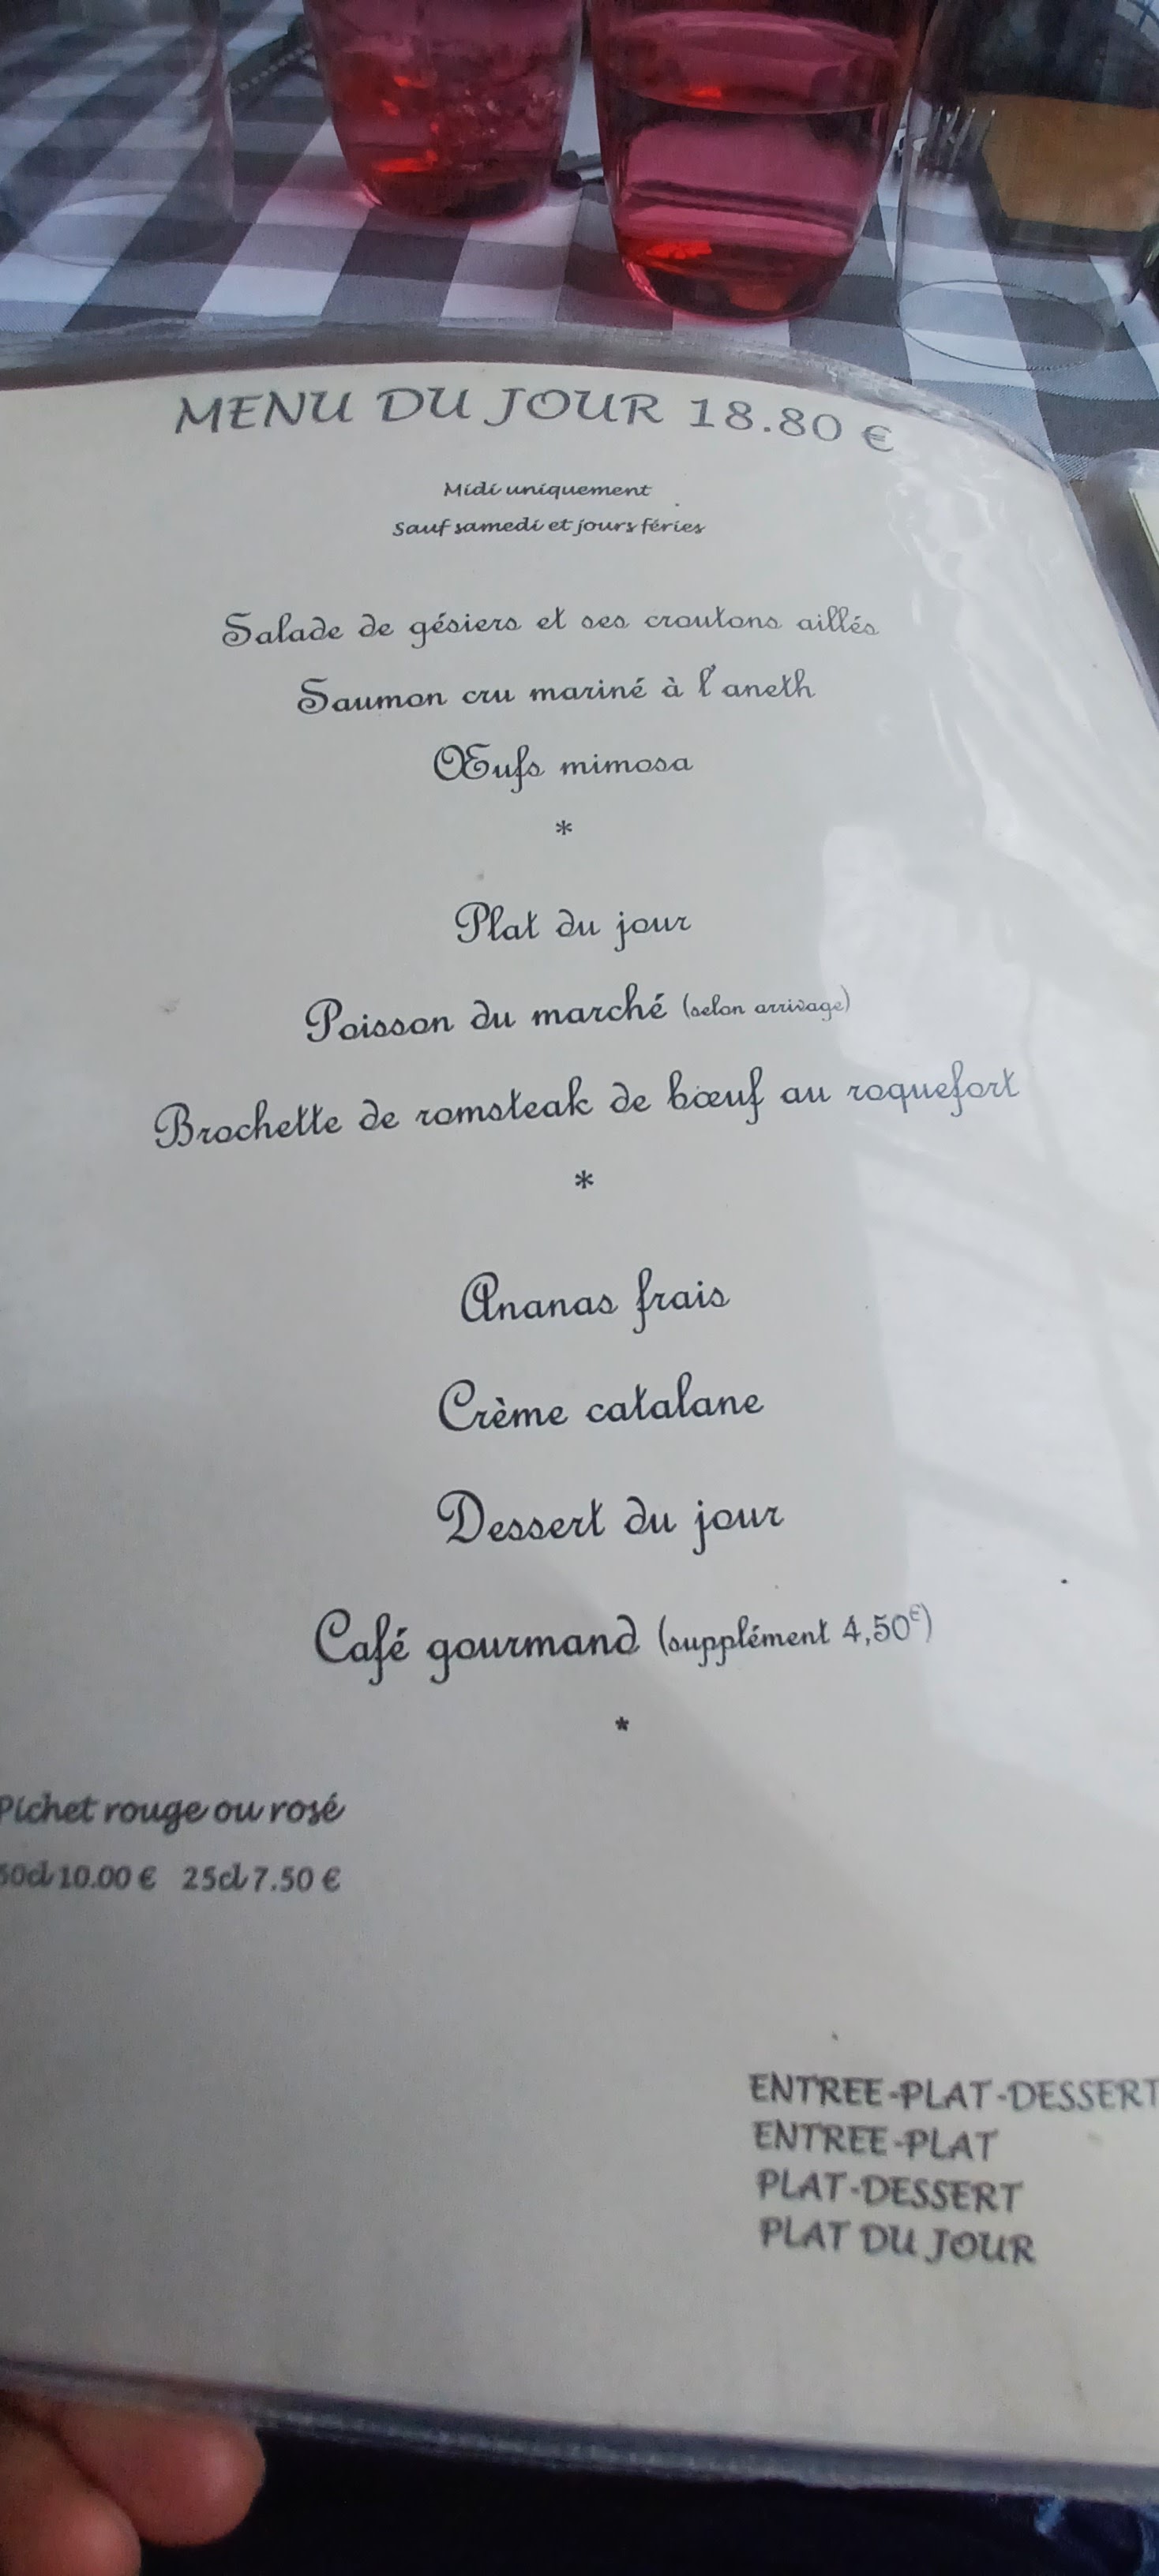 MENU DU JOUR 18.80 €
Midi uniquement
Sauf samedi et jours féries
Salade de gésiers et ses croutons aillés
Saumon cru mariné à l'aneth
Œufs mimosa
*
Plat du jour
Poisson du marché (selon arrivage)
Brochette de romsteak de bœuf au roquefort
*
Ananas frais
Crème catalane
Dessert du jour
Café gourmand (supplément 4,50€)
*
Pichet rouge ou rosé
50cl 10.00 € 25cl 7.50 €
ENTREE-PLAT-DESSERT
ENTREE-PLAT
PLAT-DESSERT
PLAT DU JOUR